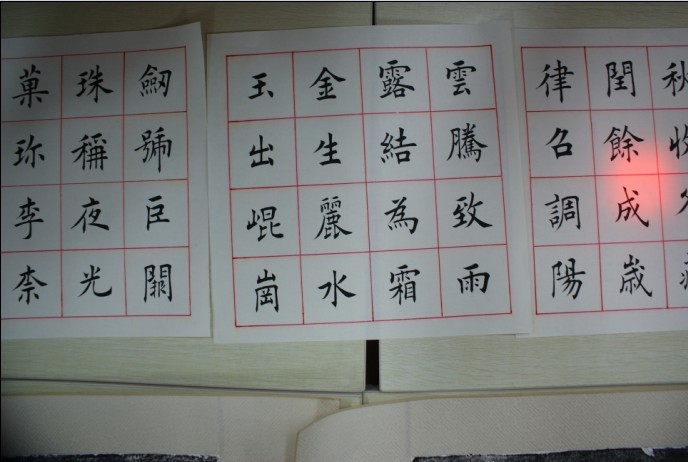 秋收
閏餘成歲
律召調陽
雲騰致雨
露結為霜
金生麗水
玉出崐崗
劒號巨闕
珠稱夜光
菓珎李柰